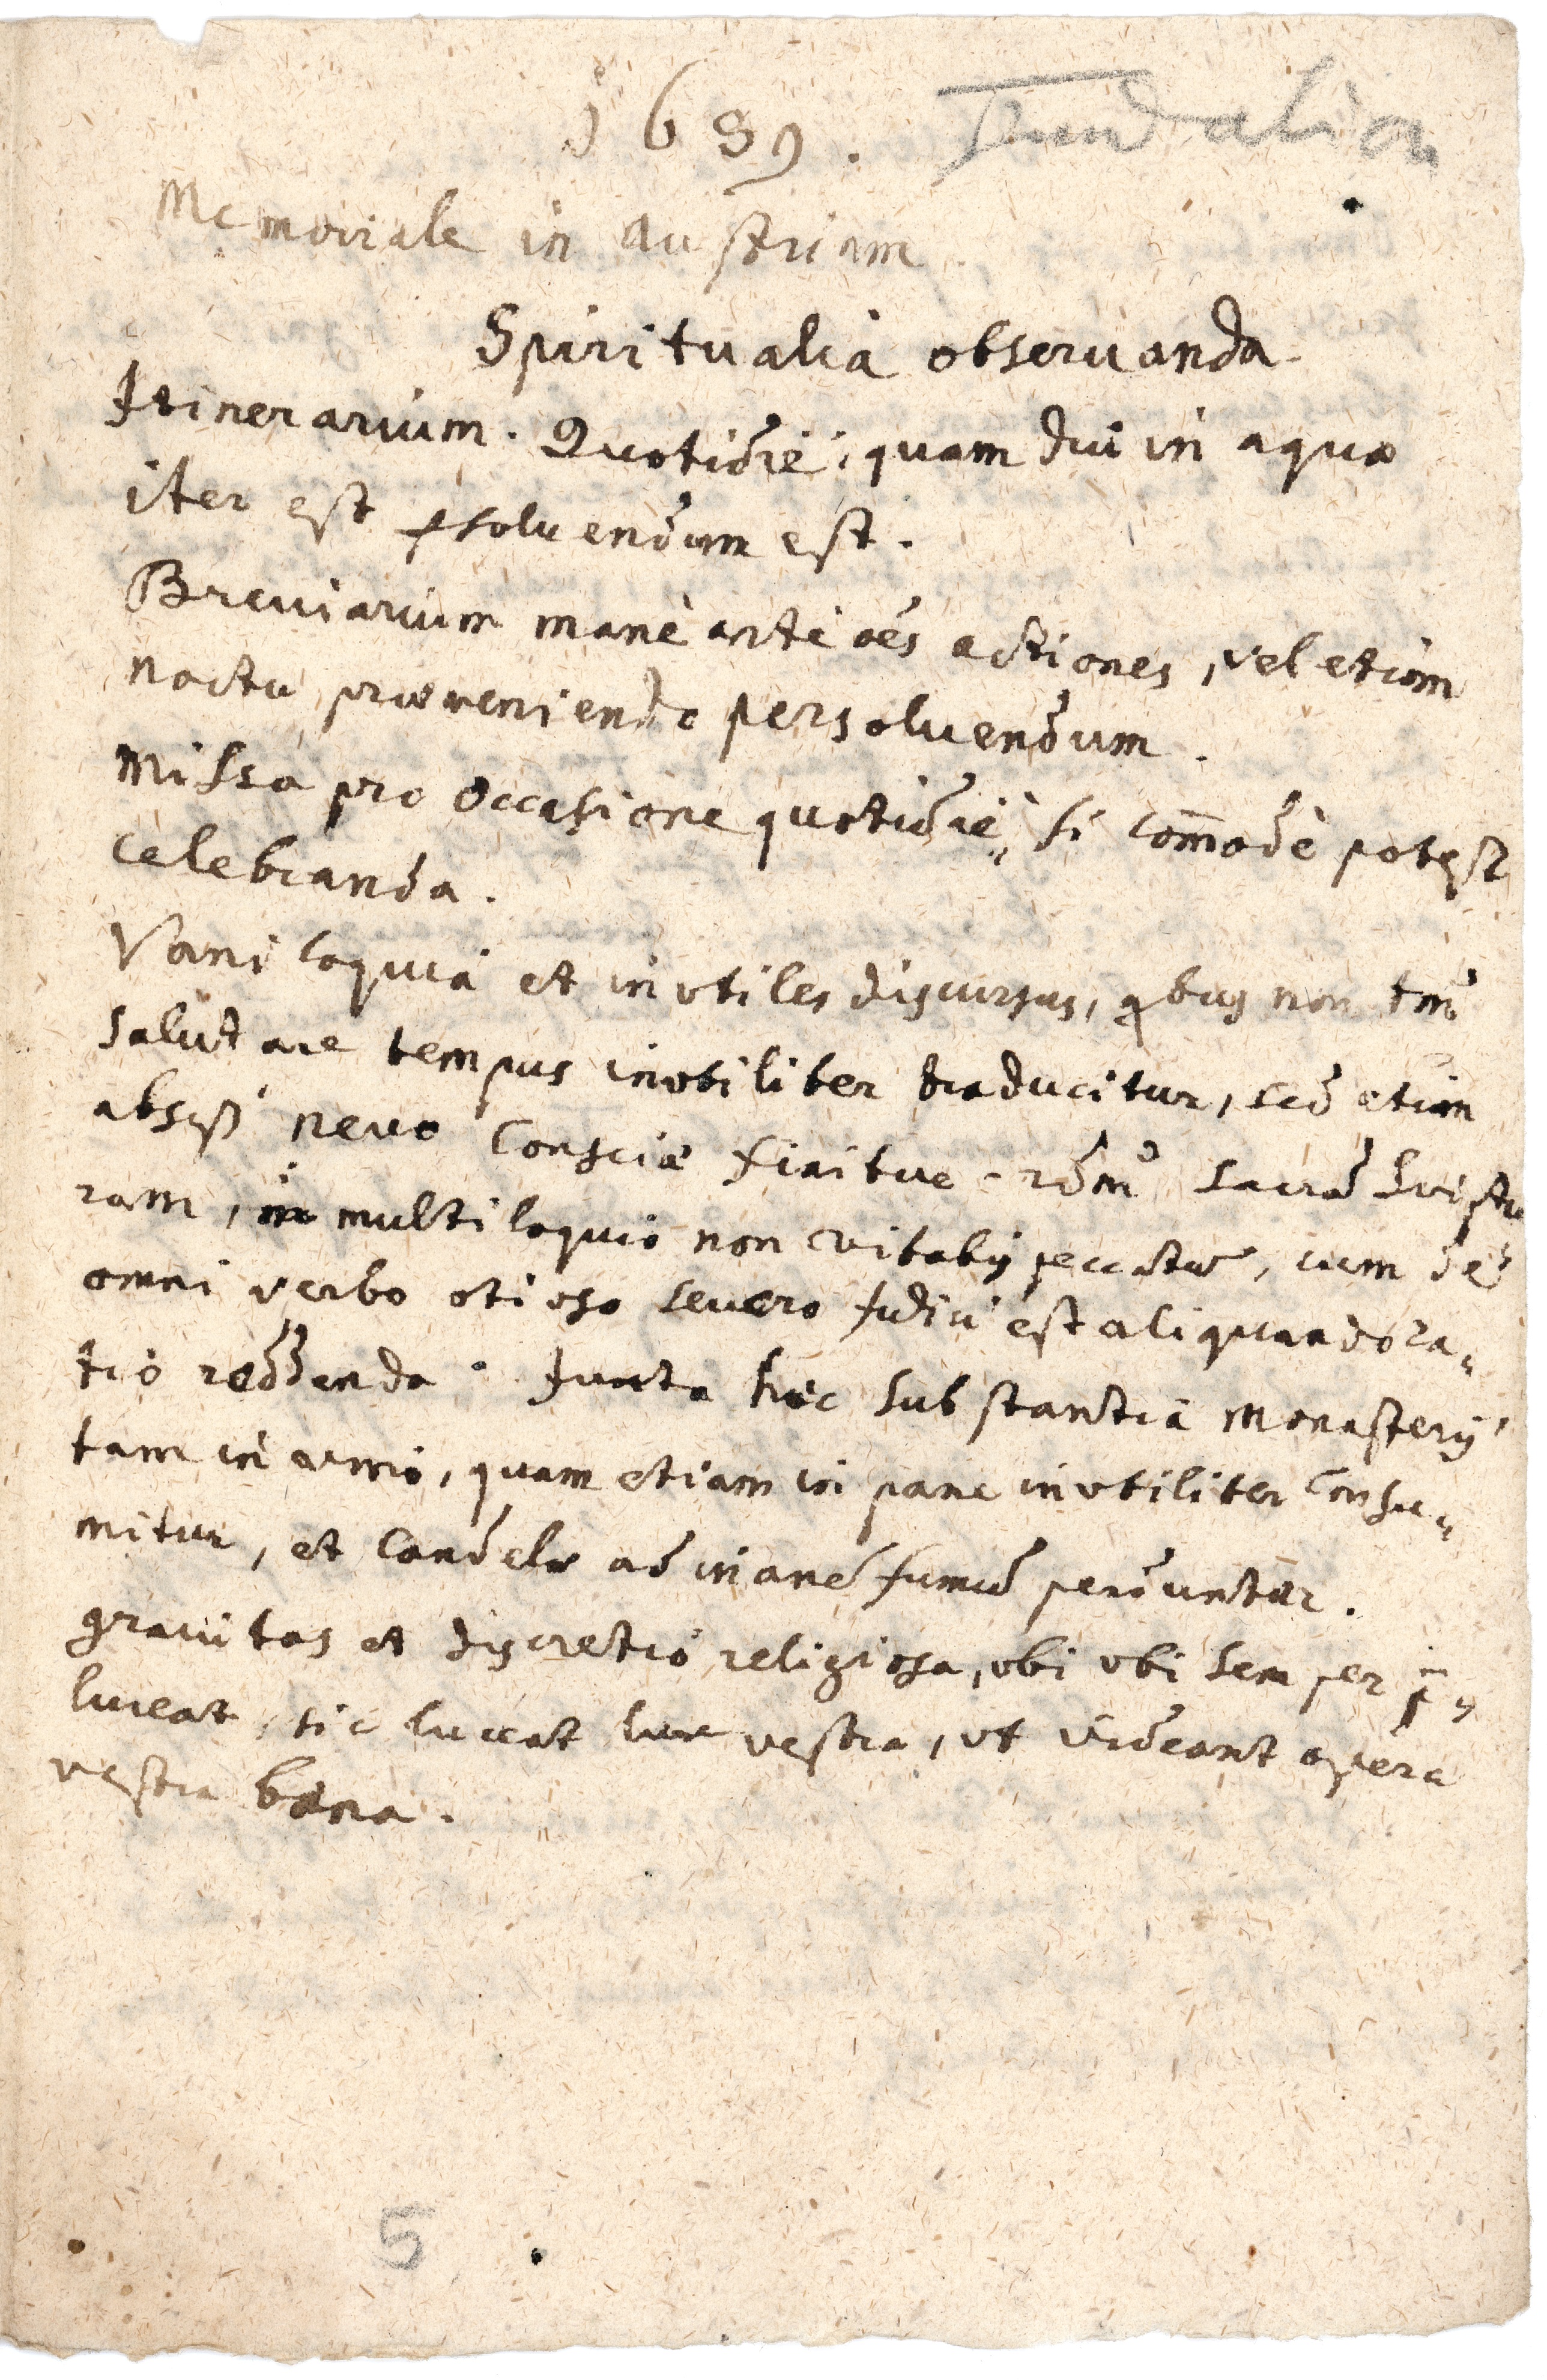 1689. Fundation
Memoriale in Austriam
Spiritualia obseruanda.
Itinerarium. Quotidie, quam diu in aqua
iter est ꝑsoluendum est.
Breuiarium manè antè oẽs actiones, vel etiam
noctu præueniendo persoluendum.
Missa pro occasione quotidiè, si com̄odè potest
celebranda.
Vaniloquia et inutiles discursus, qbus non tm̃
salutare tempus inutiliter traducitur, sed etiam
absqß neuo Consciæ finitur
ram, in multiloquio non vitabis peccatũ, cum de
omni verbo otioso seuero Judici est aliquando ra„
tio reddenda. Juxta hæc substantia monasterij
tam in vino, quam etiam in pane inutiliter Consu„
mitur, et Candelæ ad inanẽ fumũ perduntur.
grauitas et discretio religiosa, vbi vbi semper
luceat, sic luceat lux vestra, vt videant opera
vestra bona.
5